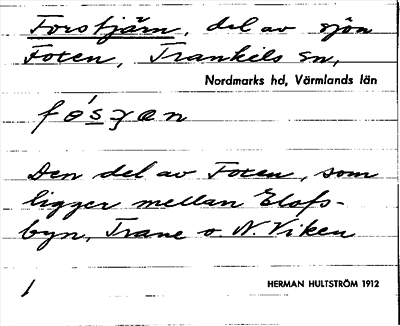 Forstjärn, del av sjön
Foxen, Trankils sn,
Nordmarks hd, Värmlands län
Den del av Foxen, som
ligger mellan Elofs-
byn, Trane o. N. Viken
1
HERMAN HULTSTRÖM 1912